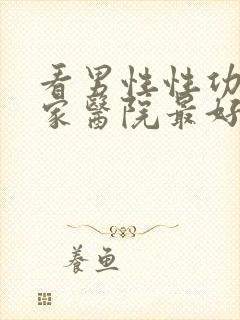 看男性性功
家醫院最好
養魚